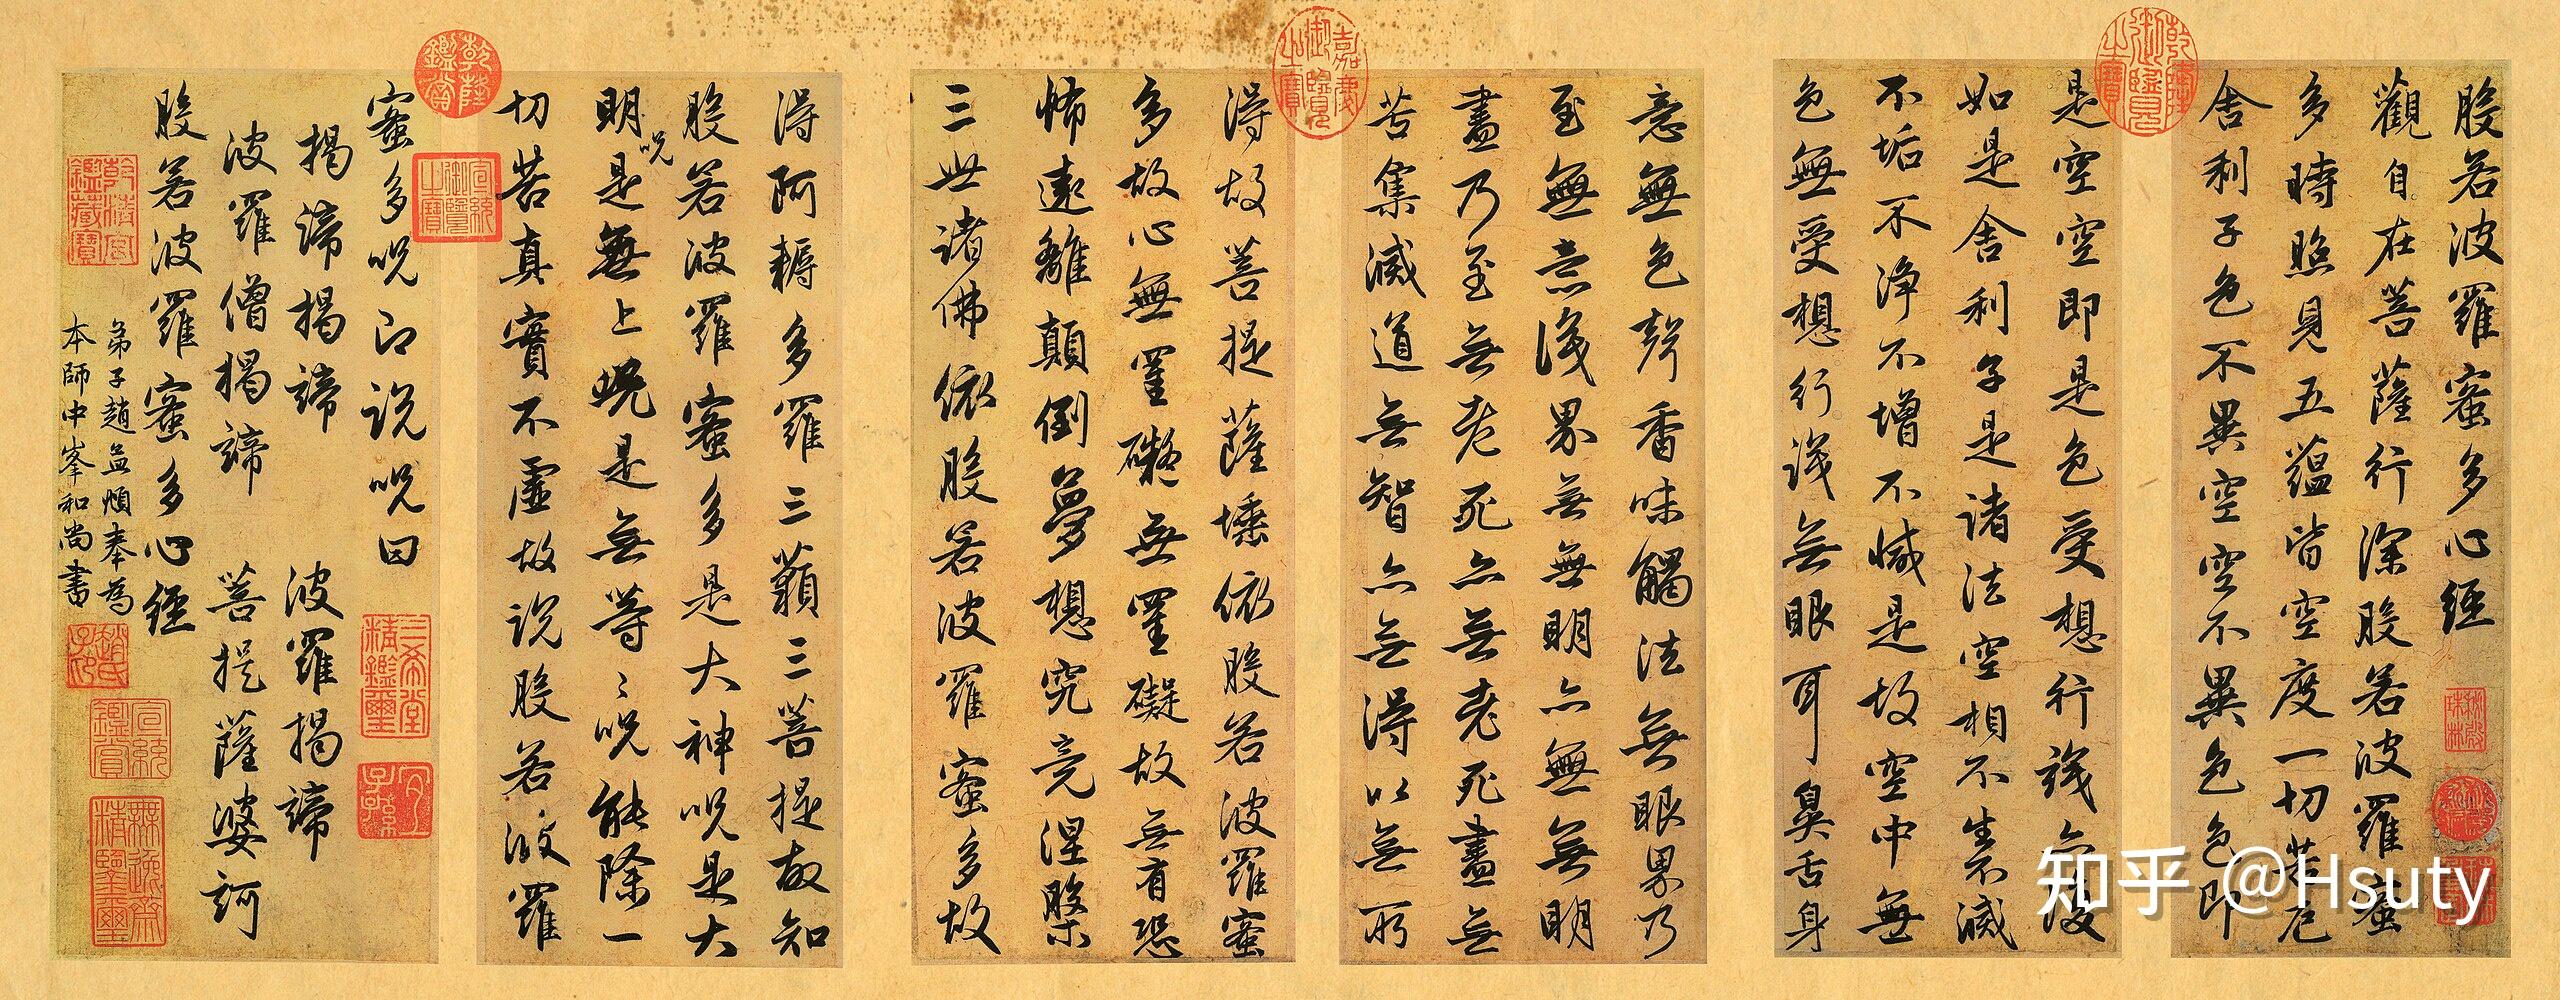 般若波羅蜜多心經
觀自在菩薩行深般若波羅蜜
多時照見五蘊皆空度一切苦厄
舍利子色不異空空不異色色即
乾隆御覽之寶
是空空即是色受想行識亦復
如是舍利子是諸法空相不生不滅
不垢不淨不增不減是故空中無
色無受想行識無眼耳鼻舌身
意無色聲香味觸法無眼界乃
至無意識界無無明亦無無明
盡乃至無老死亦無老死盡無
苦集滅道無智亦無得以無所
嘉慶御覽之寶
得故菩提薩埵依般若波羅蜜
多故心無罣礙無罣礙故無有恐
怖遠離顛倒夢想究竟涅槃
三世諸佛依般若波羅蜜多故
得阿耨多羅三藐三菩提故知
般若波羅蜜多是大神呪是大
明呪是無上呪是無等〻呪能除一
切苦真實不虛故說般若波羅
乾隆鑑賞
宣統御覽之寶
蜜多呪即說呪曰
三希堂精鑑璽
宜子孫
揭諦揭諦 波羅揭諦
波羅僧揭諦 菩提薩婆訶
般若波羅蜜多心經
弟子趙孟頫奉為
本師中峯和尚書
乾清宮鑑藏寶
趙氏子昂
宣統鑑賞
無逸齋精鑒璽
知乎 @Hsuty